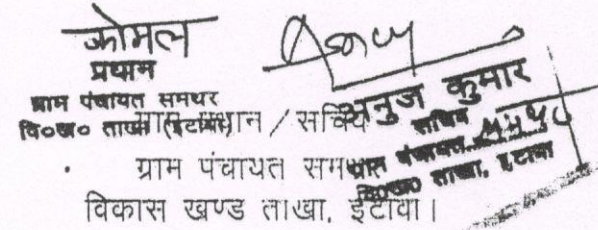 कोमल
प्रधान
ग्राम पंचायत समथर
वि०ख० ताखा (इटावा)
अनुज कुमार
सचिव
ग्राम पंचायत
वि०ख० ताखा, इटावा
ग्राम प्रधान / सचिव
ग्राम पंचायत समथर
विकास खण्ड ताखा, इटावा।